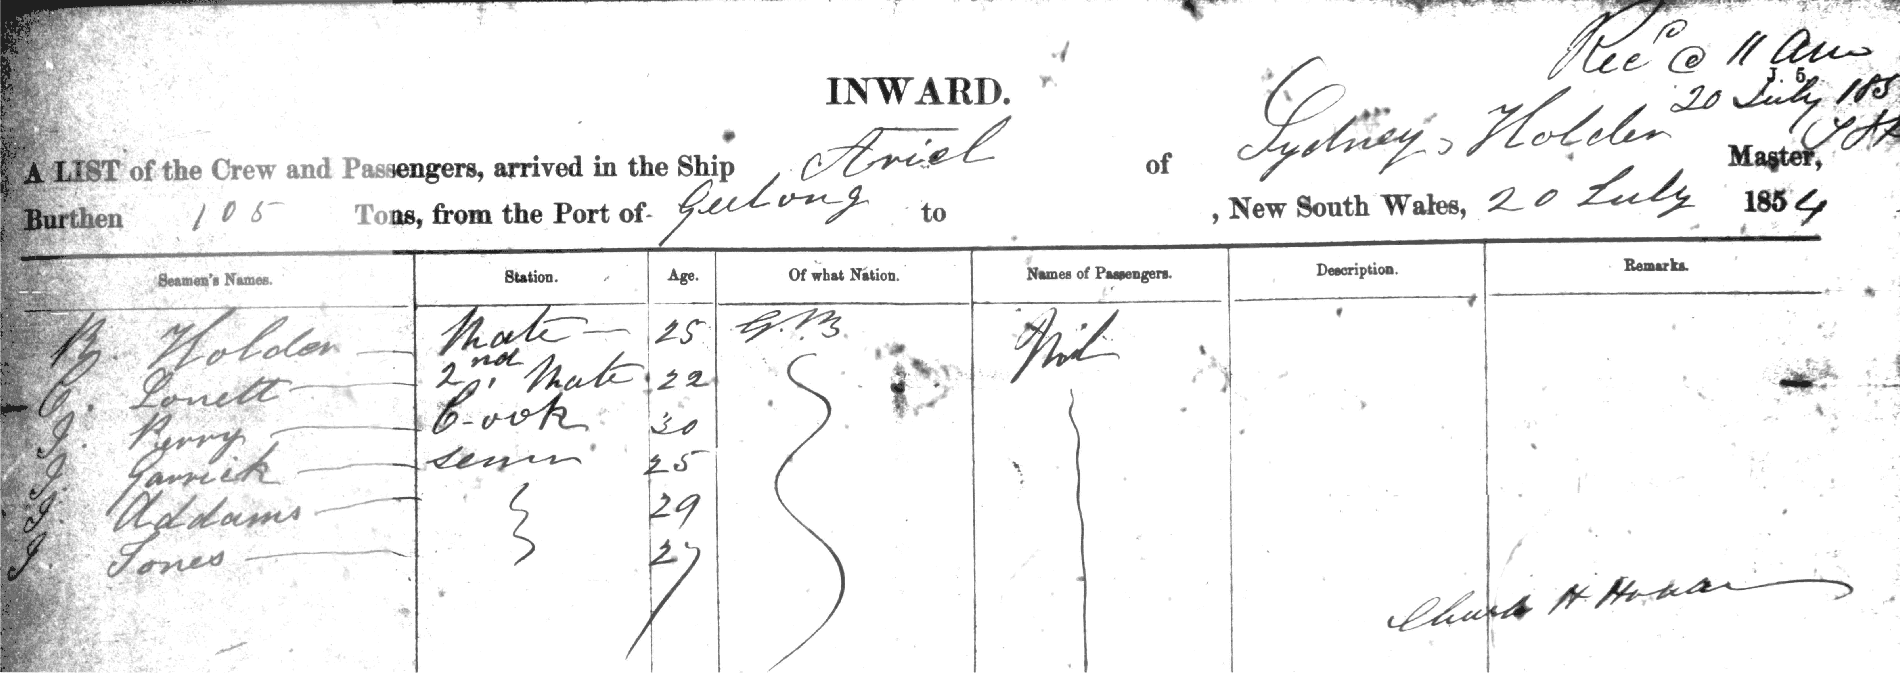 Recd @ 11 am
J. 5.
20 July 185
INWARD.
A LIST of the Crew and Passengers, arrived in the Ship Ariel of Sydney, Holder Master,
Burthen 105 Tons, from the Port of Geelong to , New South Wales, 20 July 1854
Seamen's Names. Station. Age. Of what Nation. Names of Passengers. Description. Remarks.
B. Holder Mate 25 G.B. Nil
C. 2nd Mate 22
J. Perry Cook 30
J. Garrick 25
J. Addams 29
J. Jones 27
H